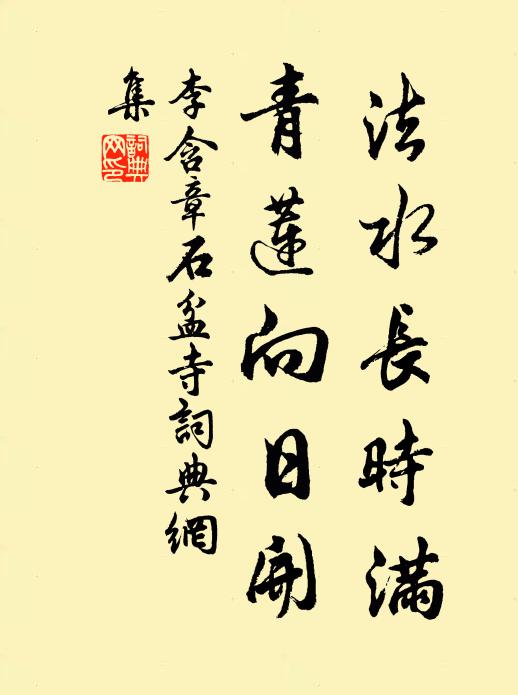 法水長時滿
青蓮向日開
李含章石盆寺詞典網
集
詞典网印